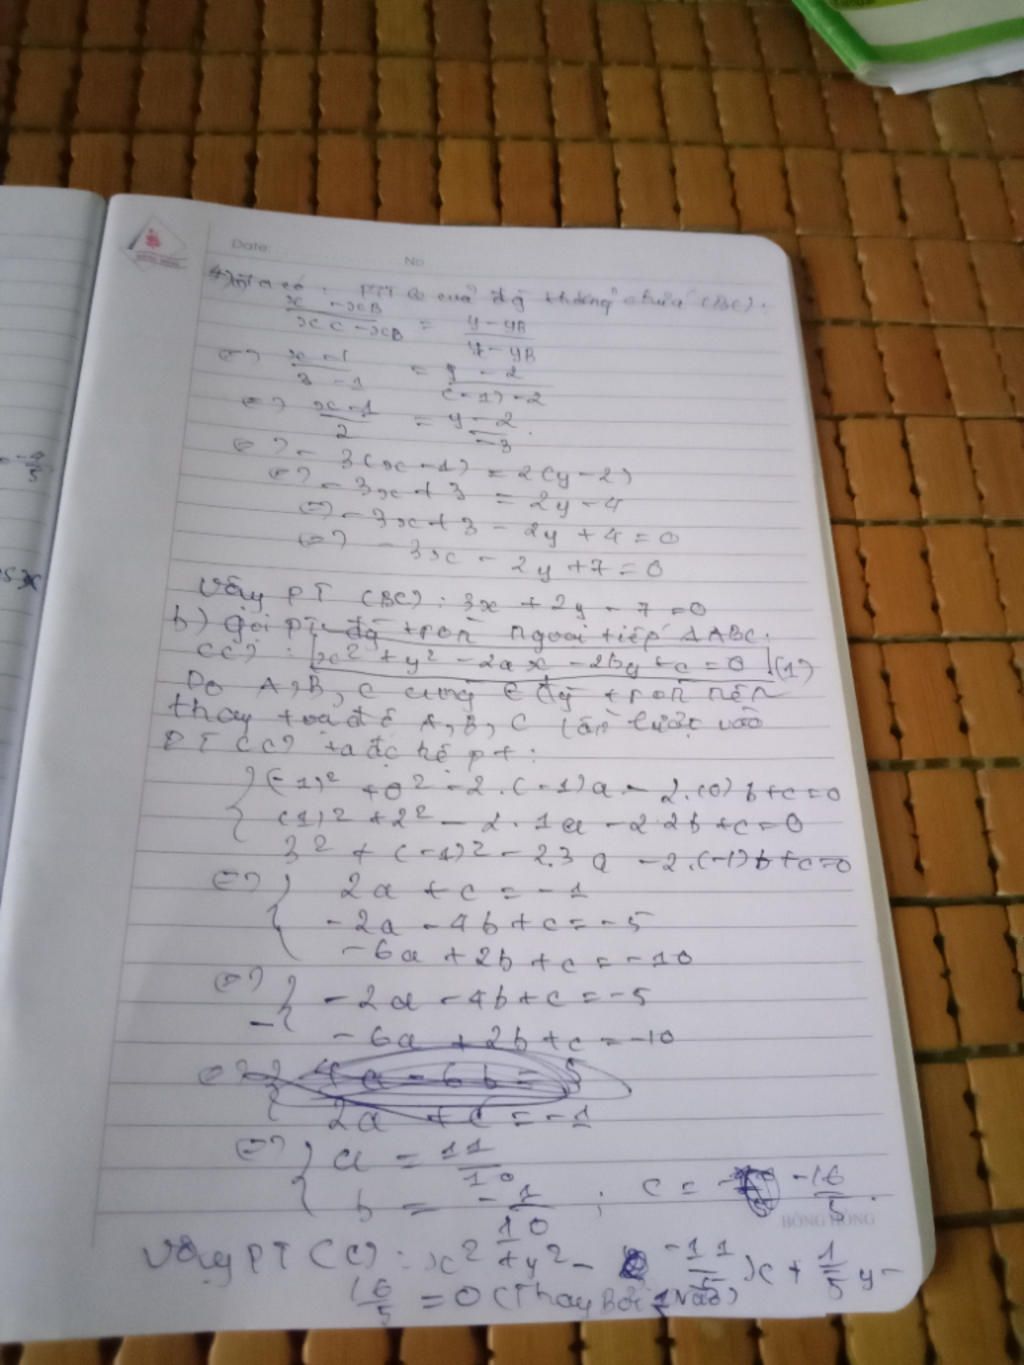 Date:
No
4) a) ta có: PTTQ của đg thẳng chứa (BC):
x - xB / xC - xB = y - yB / y - yB
<=> x - 1 / 3 - 1 = y - 2 / (-1) - 2
<=> x - 1 / 2 = y - 2 / -3.
<=> - 3(x - 1) = 2(y - 2)
<=> - 3x + 3 = 2y - 4
<=> - 3x + 3 - 2y + 4 = 0
<=> - 3x - 2y + 7 = 0
Vậy PT (BC): 3x + 2y - 7 = 0
b) Gọi PT đg tròn ngoại tiếp ΔABC:
(C): x² + y² - 2ax - 2by + c = 0 (1)
Do A, B, C cùng ∈ đg tròn nên
thay toạ độ A, B, C lần lượt vào
PT (C) ta đc hệ pt:
{ (-1)² + 0² - 2.(-1)a - 2.(0)b + c = 0
(1)² + 2² - 2.1a - 2.2b + c = 0
3² + (-1)² - 2.3a - 2.(-1)b + c = 0
<=> { 2a + c = -1
- 2a - 4b + c = -5
- 6a + 2b + c = -10
<=> { - 2a - 4b + c = -5
- 6a + 2b + c = -10
4a - 6b = 5
2a + c = -1
<=> { a = 11/10
b = -1/10 ; c = -16/5.
BÔNG HỒNG
Vậy PT (C): x² + y² - -11/5 x + 1/5 y -
16/5 = 0 (Thay Bởi 1 Vào)
= -9/5